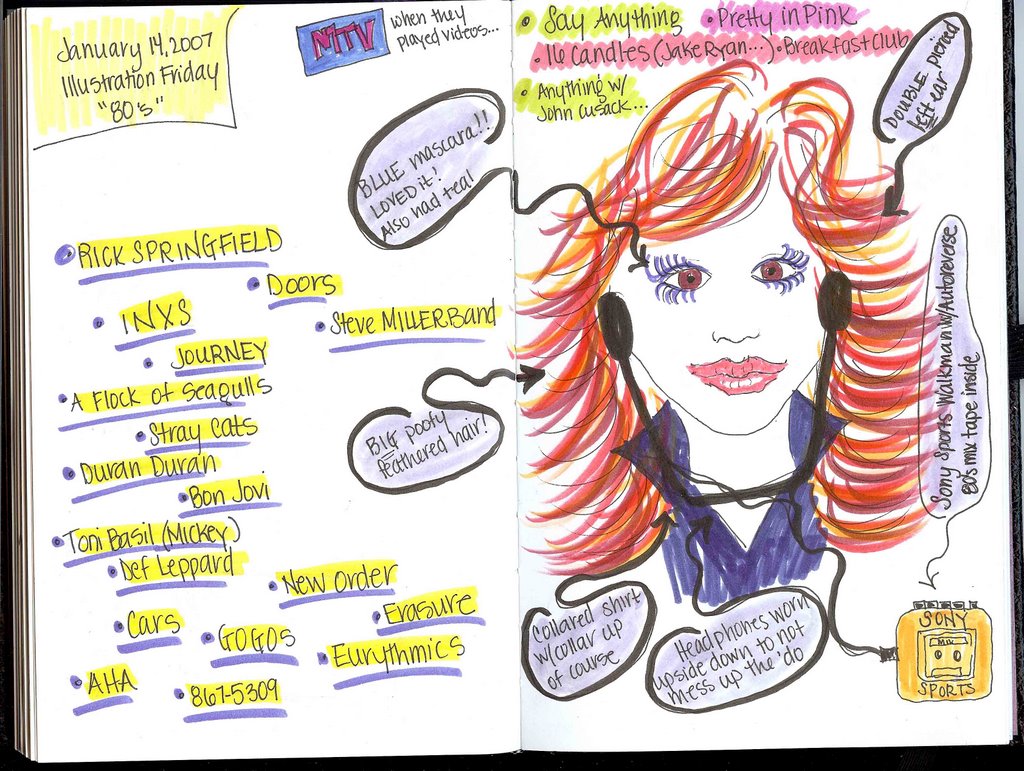 January 14, 2007
Illustration Friday
"80's"
MTV
when they
played videos...
BLUE mascara!!
LOVED it!
Also had teal
• RICK SPRINGFIELD
• Doors
• INXS
• Steve MILLER Band
• JOURNEY
• A Flock of Seagulls
• Stray Cats
• Duran Duran
• Bon Jovi
• Toni Basil (Mickey)
• Def Leppard
• New Order
• Erasure
• Cars
• GOGOs
• Eurythmics
• AHA
• 867-5309
BIG poofy
feathered hair!
• Say Anything
• Pretty in Pink
• 16 Candles (Jake Ryan...)
• Breakfast Club
• Anything w/
John Cusack...
DOUBLE pierced
left ear
Sony Sports Walkman w/Autoreverse
80s mix tape inside
Collared shirt
w/collar up
of course
Headphones worn
upside down to not
mess up the 'do
SONY
MIX
SPORTS